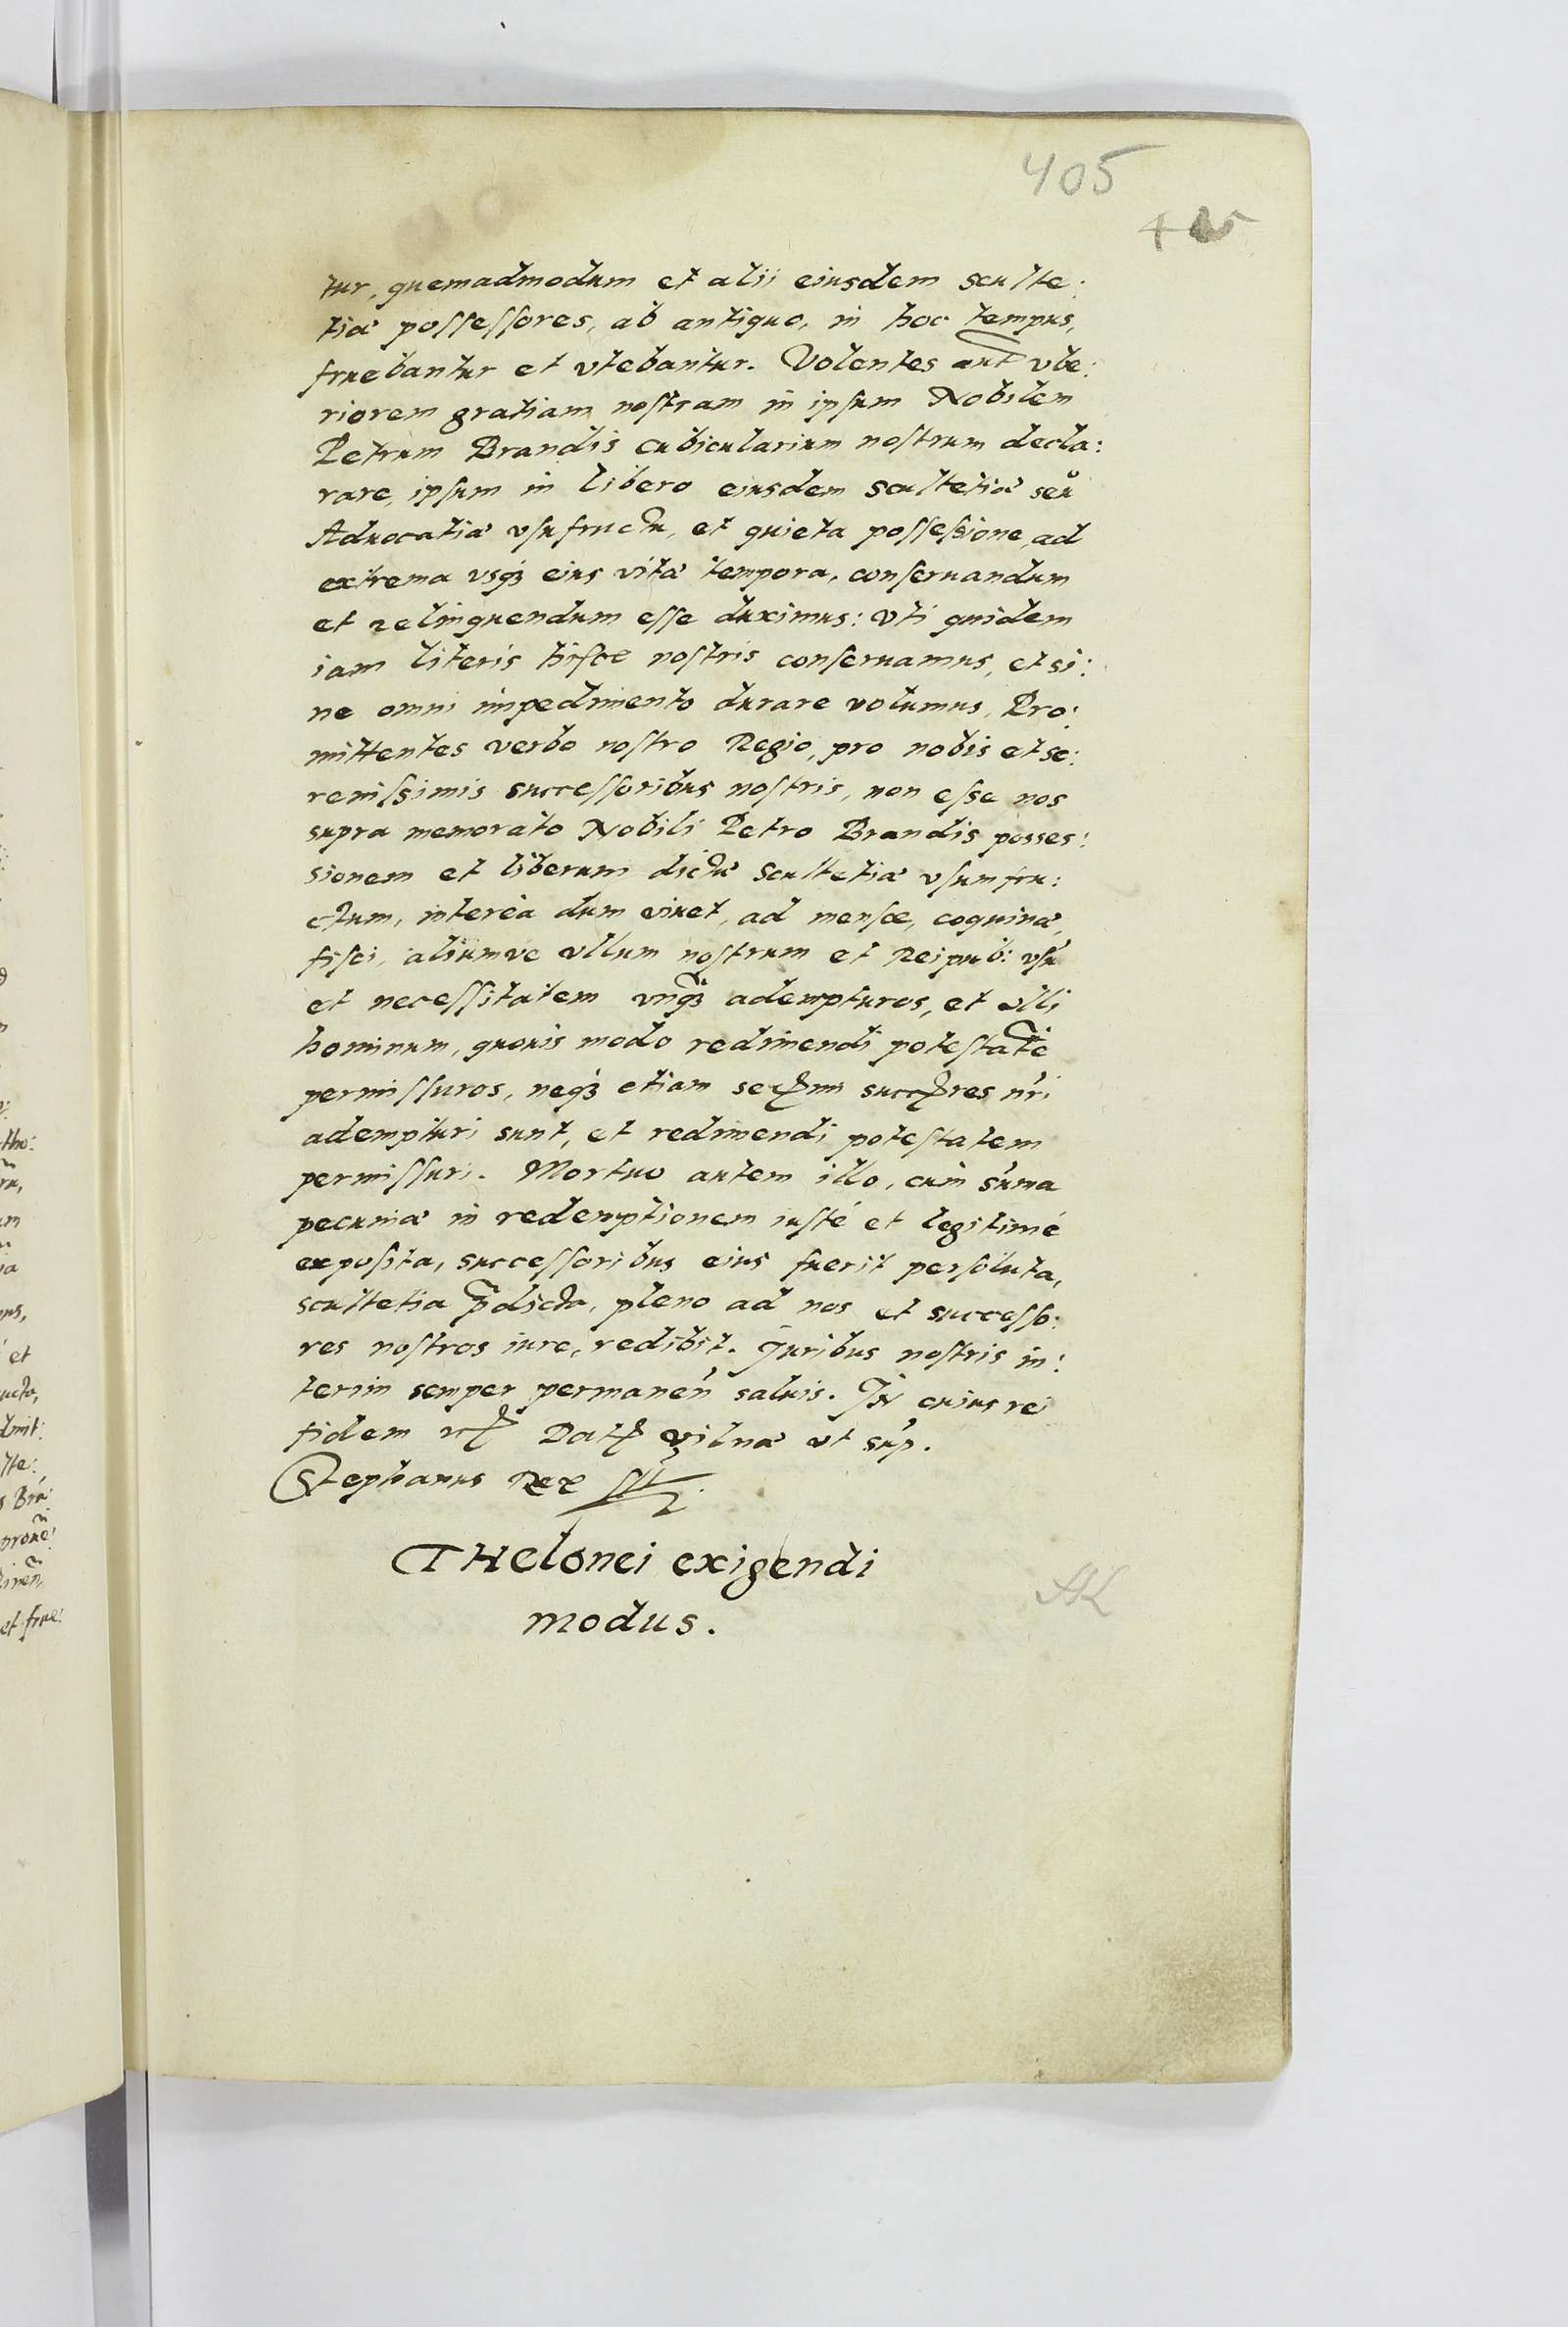 405
tur, quemadmodum et alii eiusdem sculte:
tiæ possessores, ab antiquo, in hoc tempus,
fruebantur et vtebantur. Volentes aut̃ vbe:
riorem gratiam nostram in ipsum Nobilem
Petrum Brandis cubicularium nostrum decla:
rare, ipsum in libero eiusdem Scultetiæ seu
Aduocatiæ vsufructu, et quieta possessione, ad
extrema vsq3 eius vitæ tempora, conseruandum
et relinquendum esse duximus: Vti quidem
iam literis hisce nostris conseruamus, et si:
ne omni impedimento durare volumus, Pro:
mittentes verbo nostro Regio, pro nobis et se:
renissimis successoribus nostris, non esse nos
supra memorato Nobili Petro Brandis posses:
sionem et liberum dictæ Scultetiæ vsumfru:
ctum, intereà dum viuet, ad mensæ, coquinæ,
fisci, aliumve vllum nostrum et Reipub: vsũ
et necessitatem vnq̃3 adempturos, et vlli
hominum, quouis modo redimendi potestatẽ
permissuros, neq3 etiam seꝝmi succꝝres nr̃i
adempturi sunt, et redimendi potestatem
permissuri. Mortuo autem illo, cum sum̃a
pecuniæ in redemptionem iusté et legitimé
exposita, successoribus eius fuerit persoluta,
scultetia p̃dicta, pleno ad nos et successo:
res nostros iure, redibit. Juribus nostris in:
terim semper permaneñ saluis. IN cuius rei
fidem rꝝ Datꝝ Vilnæ vt sup̃.
Stephanus Rex
THelonei exigendi
modus.
AK